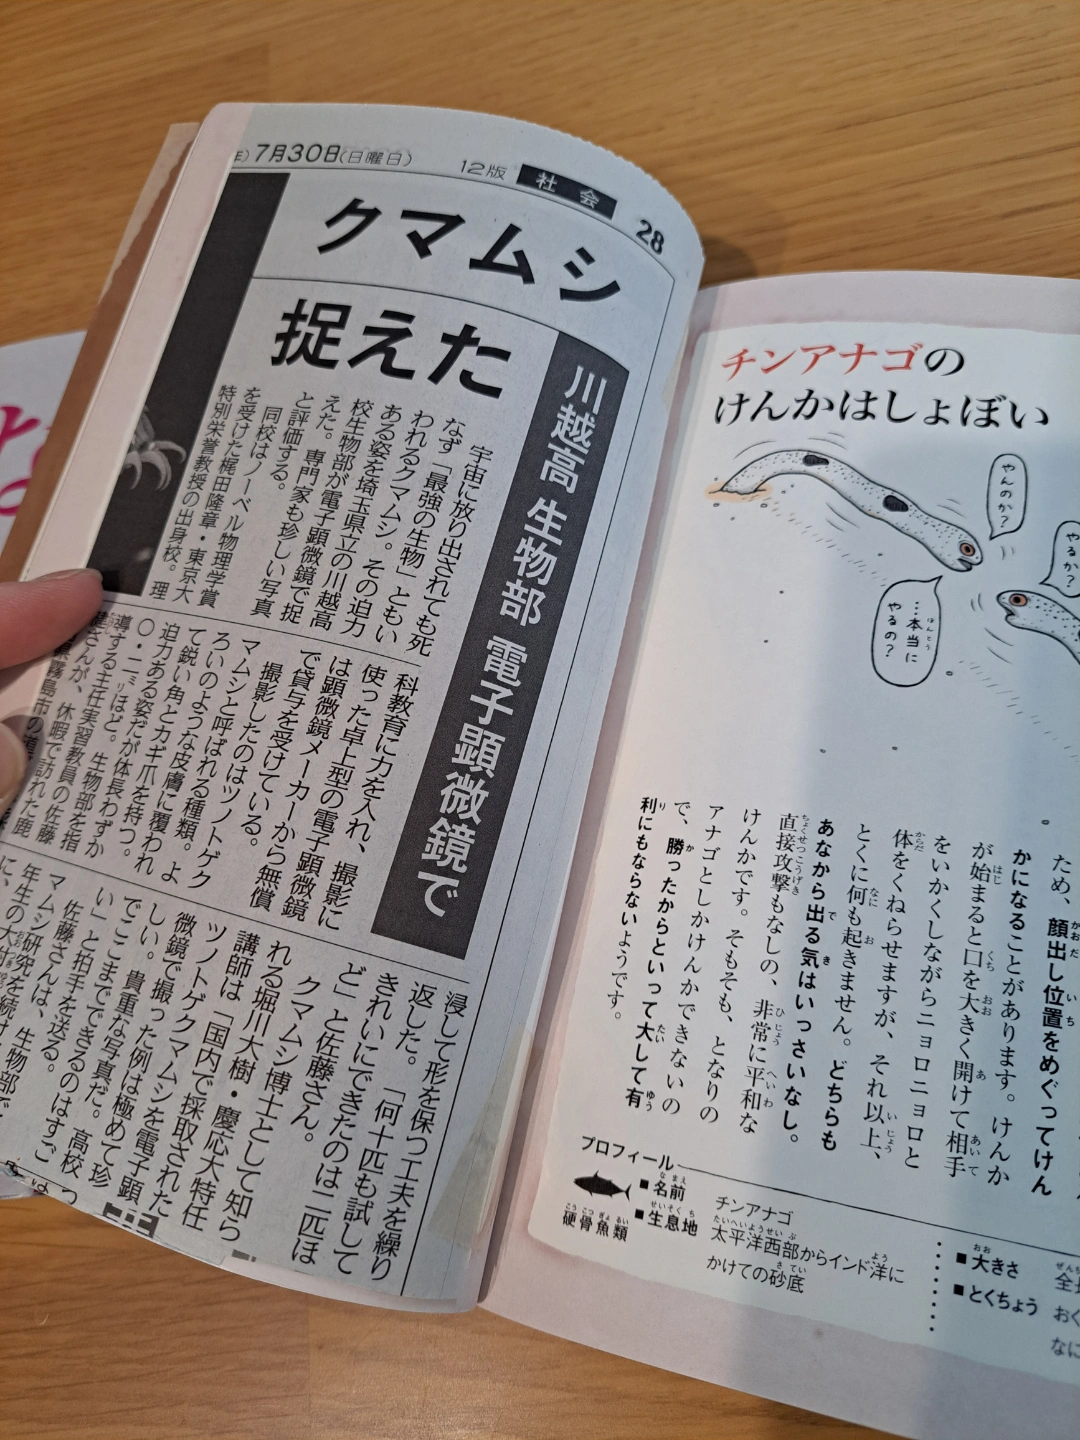 7月30日(日曜日)
12版
社会
28
クマムシ
捉えた
川越高 生物部 電子顕微鏡で
宇宙に放り出されても死
なず「最強の生物」ともい
われるクマムシ。その迫力
ある姿を埼玉県立の川越高
校生物部が電子顕微鏡で捉
えた。専門家も珍しい写真
と評価する。
同校はノーベル物理学賞
を受けた梶田隆章・東京大
特別栄誉教授の出身校。理
科教育に力を入れ、撮影に
使った卓上型の電子顕微鏡
は顕微鏡メーカーから無償
で貸与を受けている。
撮影したのはツノトゲク
マムシと呼ばれる種類。よ
ろいのような皮膚に覆われ
て鋭い角とカギ爪を持つ。
迫力ある姿だが体長わずか
〇・二ミリほど。生物部を指
導する主任実習教員の佐藤
健さんが、休暇で訪れた鹿
県霧島市の
浸して形を保つ工夫を繰り
返した。「何十匹も試して
きれいにできたのは二匹ほ
ど」と佐藤さん。
クマムシ博士として知ら
れる堀川大樹・慶応大特任
講師は「国内で採取された
ツノトゲクマムシを電子顕
微鏡で撮った例は極めて珍
しい。貴重な写真だ。高校
でここまでできるのはすご
い」と拍手を送る。
佐藤さんは、生物部で
マムシ研究を続け
年生の大村
チンアナゴの
けんかはしょぼい
やんのか?
やるか?
…本当に
やるの?
ため、顔出し位置をめぐってけん
かになることがあります。けんか
が始まると口を大きく開けて相手
をいかくしながらニョロニョロと
体をくねらせますが、それ以上、
とくに何も起きません。どちらも
あなから出る気はいっさいなし。
直接攻撃もなしの、非常に平和な
けんかです。そもそも、となりの
アナゴとしかけんかできないの
で、勝ったからといって大して有
利にもならないようです。
プロフィール
硬骨魚類
■名前 チンアナゴ
■生息地 太平洋西部からインド洋に
かけての砂底
■大きさ
■とくちょう